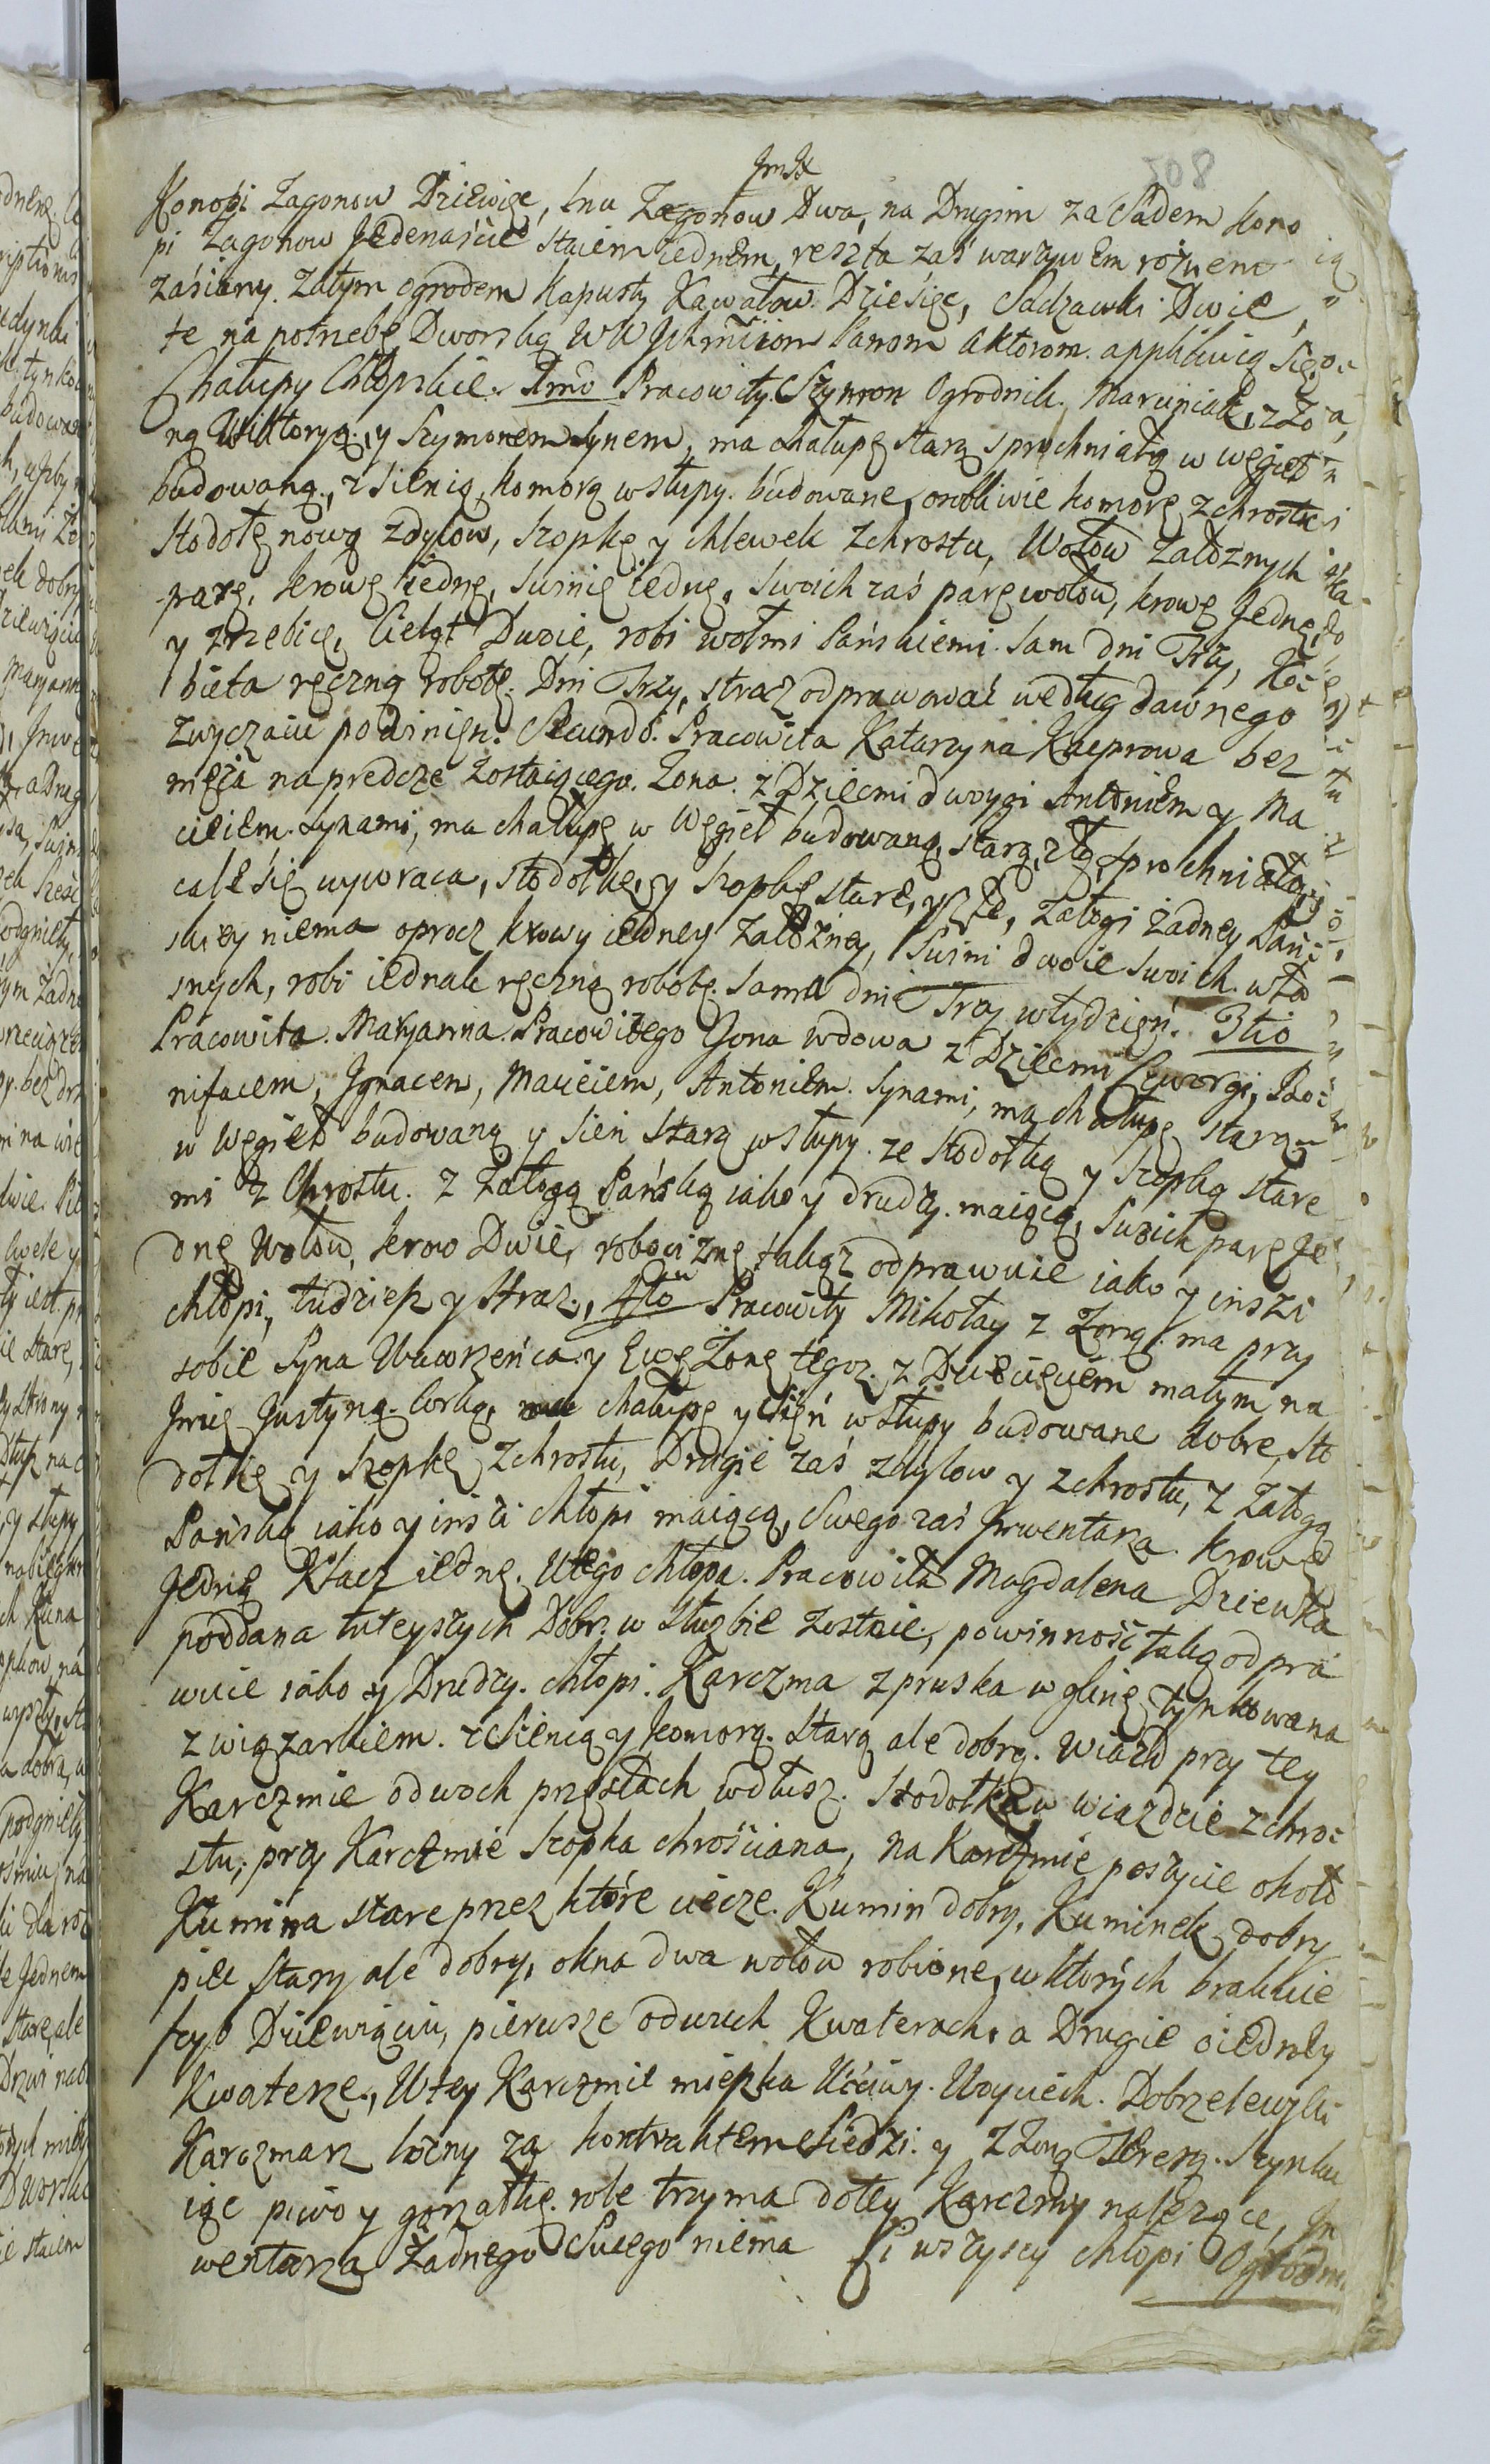 508
Konopi Zagonow Dziewięc, lnu Zagonow Dwa, na Drugim za Sadem kono
pi Zagonow Jedenaście staiem iednem, reszta zaś warzywem rożnem
zaśiany. Zatym ogrodem kapusty Kawałow Dzieśięc, Sadzawki Dwie,
te na potrzebę Dworską WW Jchmciom Panom Aktorom applikuią się,
Chałupy Chłopskie. 1mo Pracowity Szymon Ogrodnik, Marciniak, z Żo
ną Wiktoryą, y Szymonem Synem, ma chałupę starą sprochniałą w węgieł
budowaną, z sienią, komorą w słupy budowane, osobliwie komorę z chrostu
Stodołę nową z dylow, szopkę y chlewek z chrostu, Wołow załoznych
parę, krowę iednę, swinię iednę, swoich zaś parę wołow, krowę Jednę,
y zrzebię, Cieląt Dwoie, robi wołmi Pańskiemi sam dni Trzy, Ko
bieta ręczną robotę Dni Trzy, straz odprawować według dawnego
zwyczaiu powinien. Secundo. Pracowita Katarzyna Kacprowa bez
męża na predcze zostaiącego Zona z Dziecmi dwoygi Antoniem y Ma
cieiem Synami, ma chałupę w Węgieł budowaną, starą, złą, sprochniałą, y
cale się wywraca, stodołkę, y szopkę stare, y złe, załogi żadney Pań
skiey niema oprocz krowy iedney załozney, Swini dwoie swoich wła
snych, robi iednak ręczną robotę sama dni Trzy w tydzień. 3tio
Pracowita Maryanna Pracowitego Zona wdowa z Dziecmi Czworgi, Bo
nifacem, Jgnacem, Macieiem, Antoniem Synami, ma chałupę starą
w Węgieł budowaną y sień starą w słupy ze stodołką y szopką stare
mi z Chrostu z Załogą Pańską iako y drudzy maiącą, swoich parę Je
dnę Wołow, krow Dwie, robociznę takąż odprawuie iako y inszi
chłopi, tudziesz y straz, 4to Pracowity Mikołay z Zoną ma przy
sobie Syna Wawrzeńca y Ewę Zonę tegoz z Dziecięciem małym na
Jmię Justyną Corką, ma chałupę y sień w słupy budowane dobre, sto
dołkę y szopkę z chrostu, Drugie zaś z dylow y z chrostu, z Załogą
Pańską iako y inśi chłopi maiącą, swego zaś Jnwentarza krowę
Jednę Klacz iednę. U tego chłopa Pracowita Magdalena Dziewka
poddana tuteyszych Dobr w słuzbie zostaie, powinność taką odpra
wuie iako y Drudzy chłopi. Karczma z pruska w glinę tynkowana
z wiązarkiem z sienią y komorą starą ale dobrą. Wiazd przy tey
Karczmie o dwoch przęsłach wdłusz. Stodołka w wiazdzie z chro
stu, przy Karczmie szopka chrościana, na Karczmie poszycie około
Kumina stare przez które ciecze. Kumin dobry, Kuminek dobry
piec stary ale dobry, okna dwa w ołow robione, w ktorych brakuie
szyb Dziewięciu, pierwsze o dwuch Kwaterach, a Drugie o iedney
Kwaterze, W tey Karczmie mieszka Uczciwy Woyciech Dobrzelewski
Karczmarz locny za kontraktem siedzi y z Zoną Tereszą Szynku
iąc piwo y gorzałkę role trzyma do tey Karczmy należące, Jn
wentarza żadnego swego niema Ci wszyscy chłopi Ogrodni